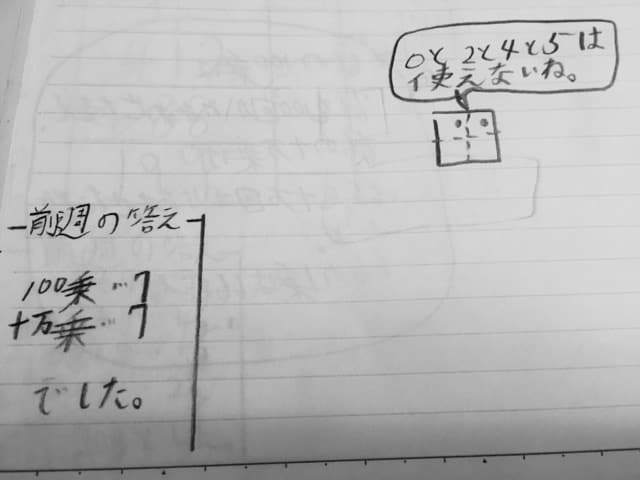 0と2と4と5は
使えないね。
前週の答え
100乗…7
十万乗…7
でした。